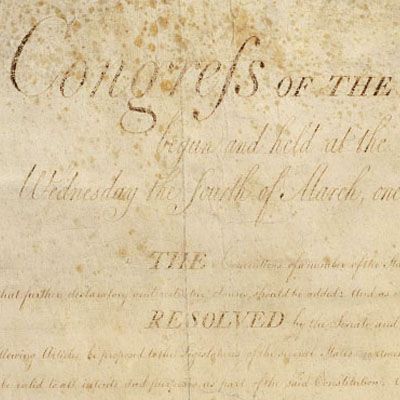 Congreſs OF THE
begun and held at the
Wednesday the fourth of March, one
THE Conventions of a number of the Sta
that further declaratory and restrictive clauses should be added: And as e
RESOLVED by the Senate and
llowing Articles be proposed to the Legislatures of the several States
be valid to all intents and purposes as part of the said Constitution,